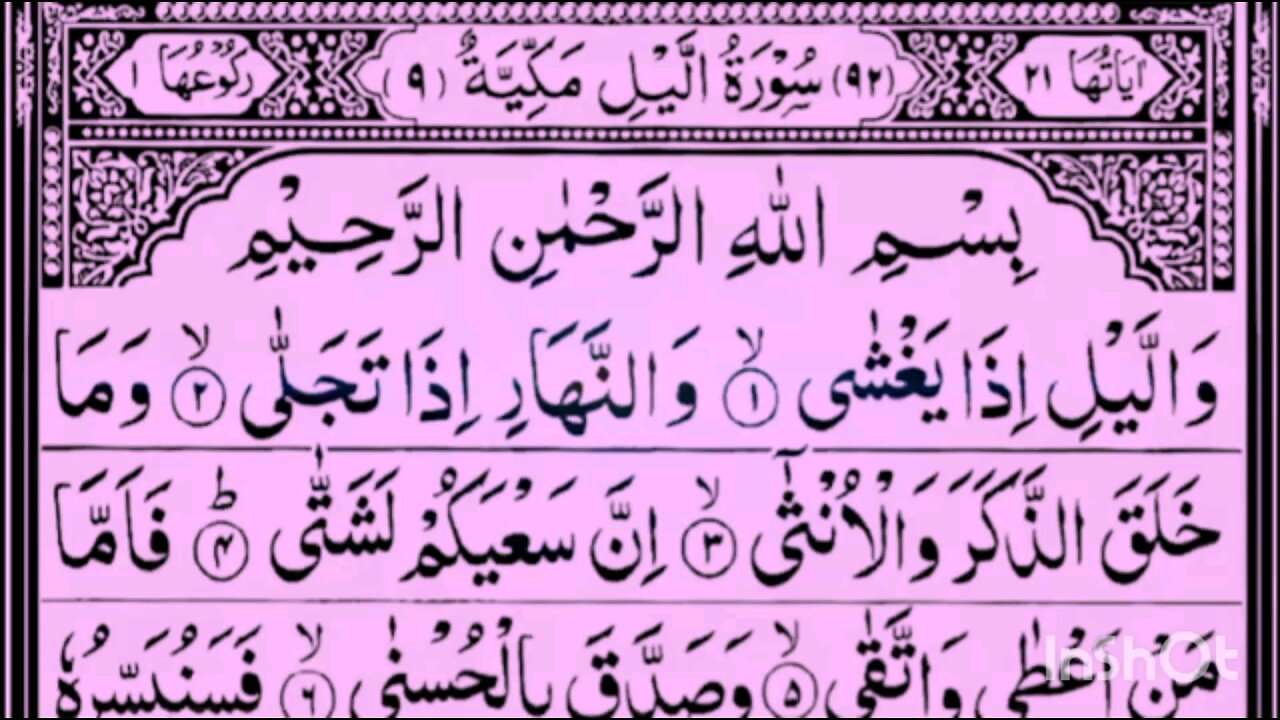 اٰيَاتُهَا ٢١ (٩٢) سُوْرَةُ الَّيْلِ مَكِّيَّةٌ (٩) رُكُوْعُهَا ١
بِسْمِ اللهِ الرَّحْمٰنِ الرَّحِيْمِ
وَالَّيْلِ اِذَا يَغْشٰى ۙ ١ وَالنَّهَارِ اِذَا تَجَلّٰى ۙ ٢ وَمَا
خَلَقَ الذَّكَرَ وَالْاُنْثٰٓى ۙ ٣ اِنَّ سَعْيَكُمْ لَشَتّٰى ؕ ۴ فَاَمَّا
مَنْ اَعْطٰى وَاتَّقٰى ۙ ۵ وَصَدَّقَ بِالْحُسْنٰى ۙ ۶ فَسَنُيَسِّرُهٗ
InShOt